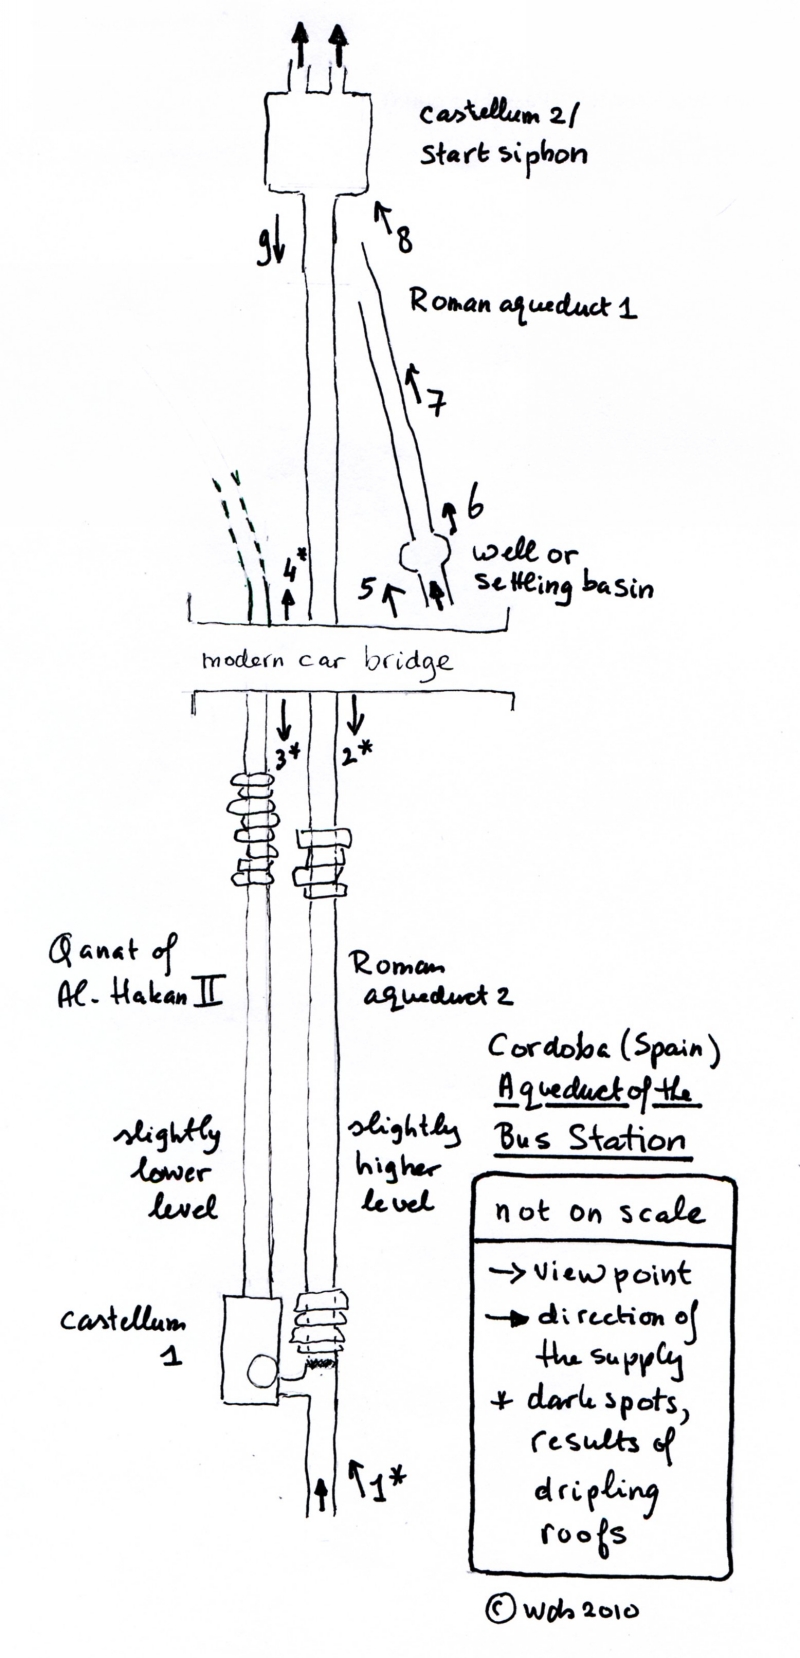 castellum 2/
start siphon
9
8
Roman aqueduct 1
7
6
4*
5
well or
settling basin
modern car bridge
3*
2*
Qanat of
Al-Hakan II
Roman
aqueduct 2
Cordoba (Spain)
Aqueduct of the
Bus Station
slightly
lower
level
slightly
higher
level
castellum
1
1*
not on scale
→ view point
→ direction of
the supply
* dark spots,
results of
dripling
roofs
© Wds 2010